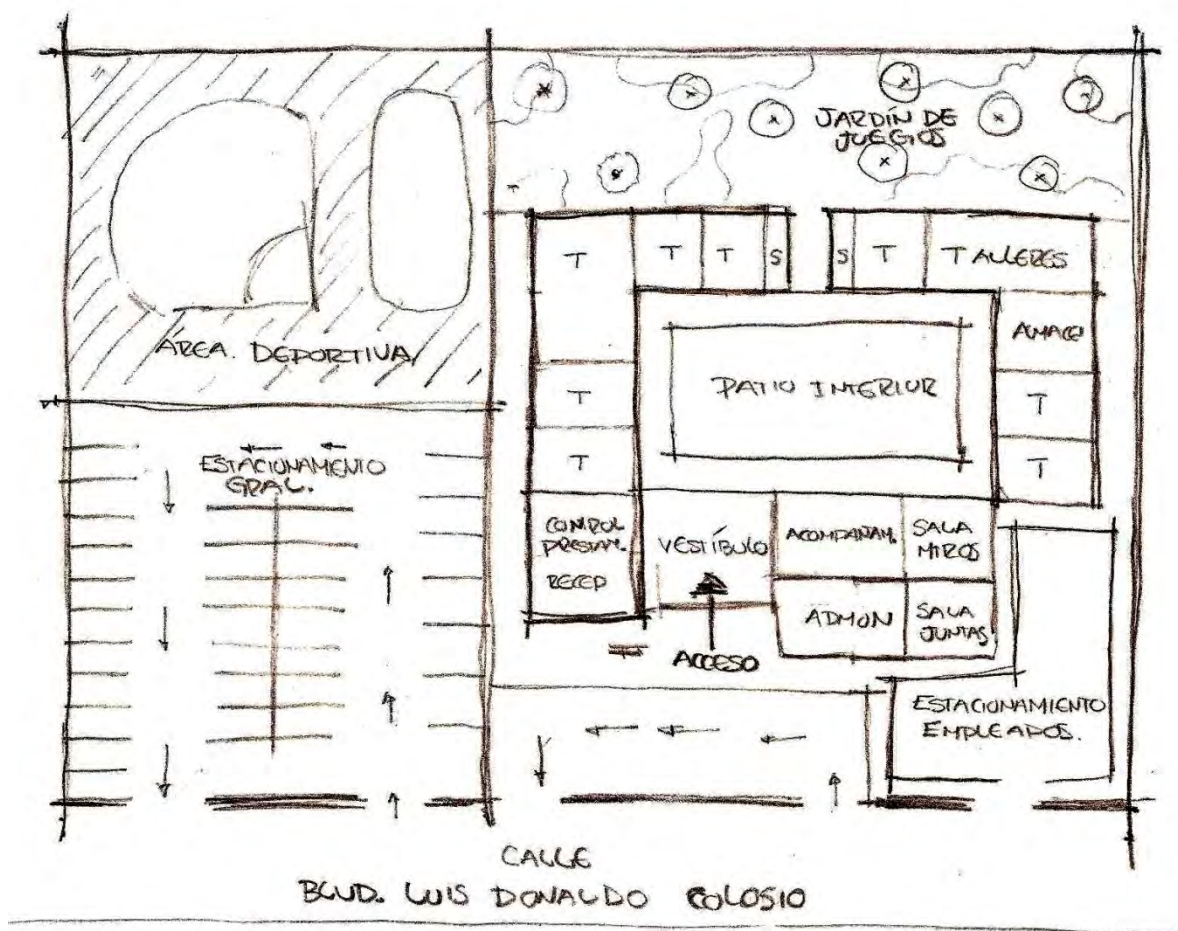 JARDÍN DE
JUEGOS
T
T
T
S
S
T
TALLERES
ÁREA. DEPORTIVA
ALMACE
PATIO INTERIOR
T
T
T
T
ESTACIONAMIENTO
GRAL.
CONTROL
PRESTAM.
RECEP
VESTÍBULO
ACOMPAÑAM.
SALA
ADMON
SALA
JUNTAS
ACCESO
ESTACIONAMIENTO
EMPLEADOS.
CALLE
BLVD. LUIS DONALDO COLOSIO